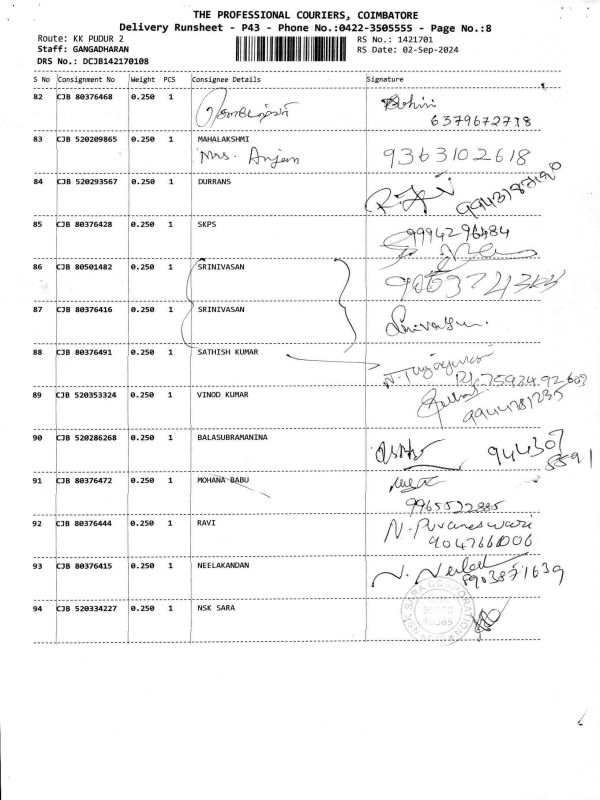 THE PROFESSIONAL COURIERS, COIMBATORE
Delivery Runsheet - P43 - Phone No.:0422-3505555 - Page No.:8
Route: KK PUDUR 2 RS No.: 1421701
Staff: GANGADHARAN RS Date: 02-Sep-2024
DRS No.: DCJB142170108
S No Consignment No Weight PCS Consignee Details Signature
82 CJB 80376468 0.250 1
6379672718
83 CJB 520209865 0.250 1 MAHALAKSHMI
Mrs. Anjem 9363102618
84 CJB 520293567 0.250 1 DURRANS
85 CJB 80376428 0.250 1 SKPS
9994296484
86 CJB 80501482 0.250 1 SRINIVASAN
87 CJB 80376416 0.250 1 SRINIVASAN
88 CJB 80376491 0.250 1 SATHISH KUMAR
89 CJB 520353324 0.250 1 VINOD KUMAR
9944781235
90 CJB 520286268 0.250 1 BALASUBRAMANINA
944307
91 CJB 80376472 0.250 1 MOHANA BABU
9965522885
92 CJB 80376444 0.250 1 RAVI N. Puvaneswari
93 CJB 80376415 0.250 1 NEELAKANDAN
8903871639
94 CJB 520334227 0.250 1 NSK SARA